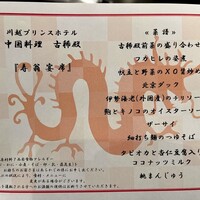 川越プリンスホテル
中国料理 古稀殿
『寿翁宴席』
≪菜譜≫
古稀殿前菜の盛り合わせ
フカヒレの姿煮
帆立と野菜のXO醤炒め
北京ダック
伊勢海老(外国産)のチリソース
鮑とキノコのオイスターソース
ザーサイ
細打ち麺のつゆそば
タピオカと杏仁豆腐入り
ココナッツミルク
桃まんじゅう